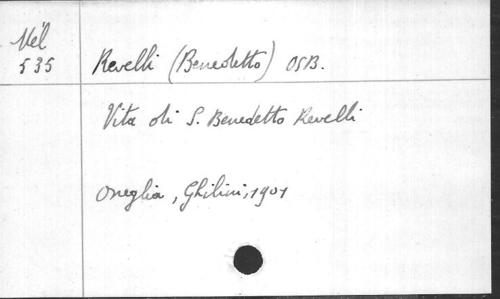 Mél
535
Revelli (Benedetto) OSB.
Vita di S. Benedetto Revelli
Oneglia, Ghilini, 1901